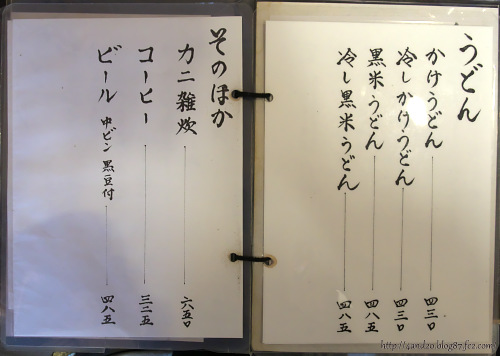 うどん
かけうどん 四三〇
冷しかけうどん 四三〇
黒米うどん 四八五
冷し黒米うどん 四八五
そのほか
カニ雑炊 六五〇
コーヒー 三二五
ビール 中ビン 黒豆付 四八五
http://4and20.blog87.fc2.com/